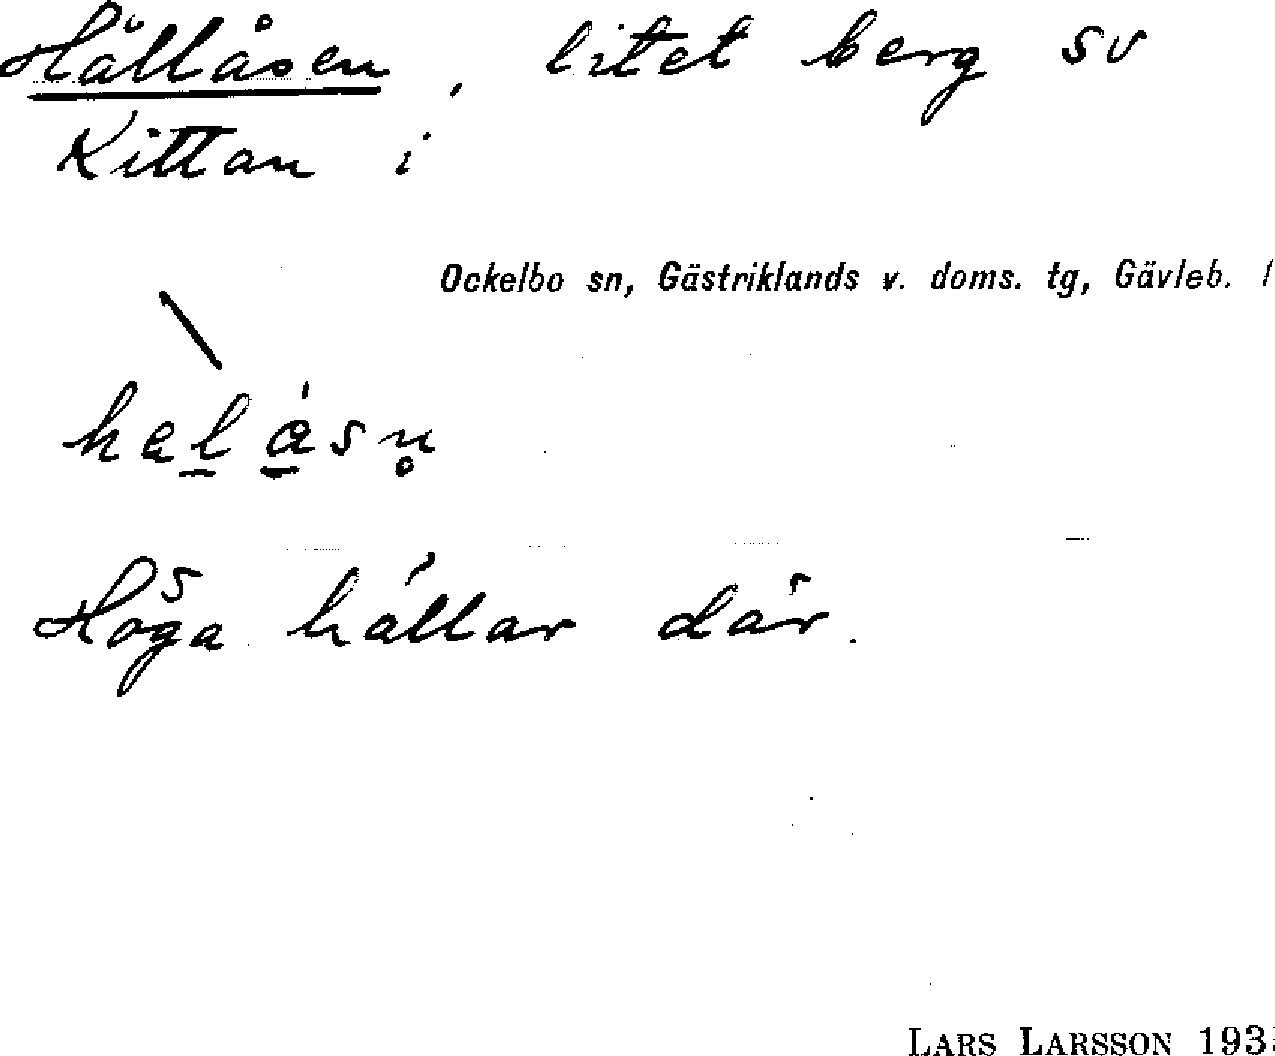 Hällåsen, litet berg sv
Kittan i
Ockelbo sn, Gästriklands v. doms. tg, Gävleb. l
Höga hällar där.
LARS LARSSON 193